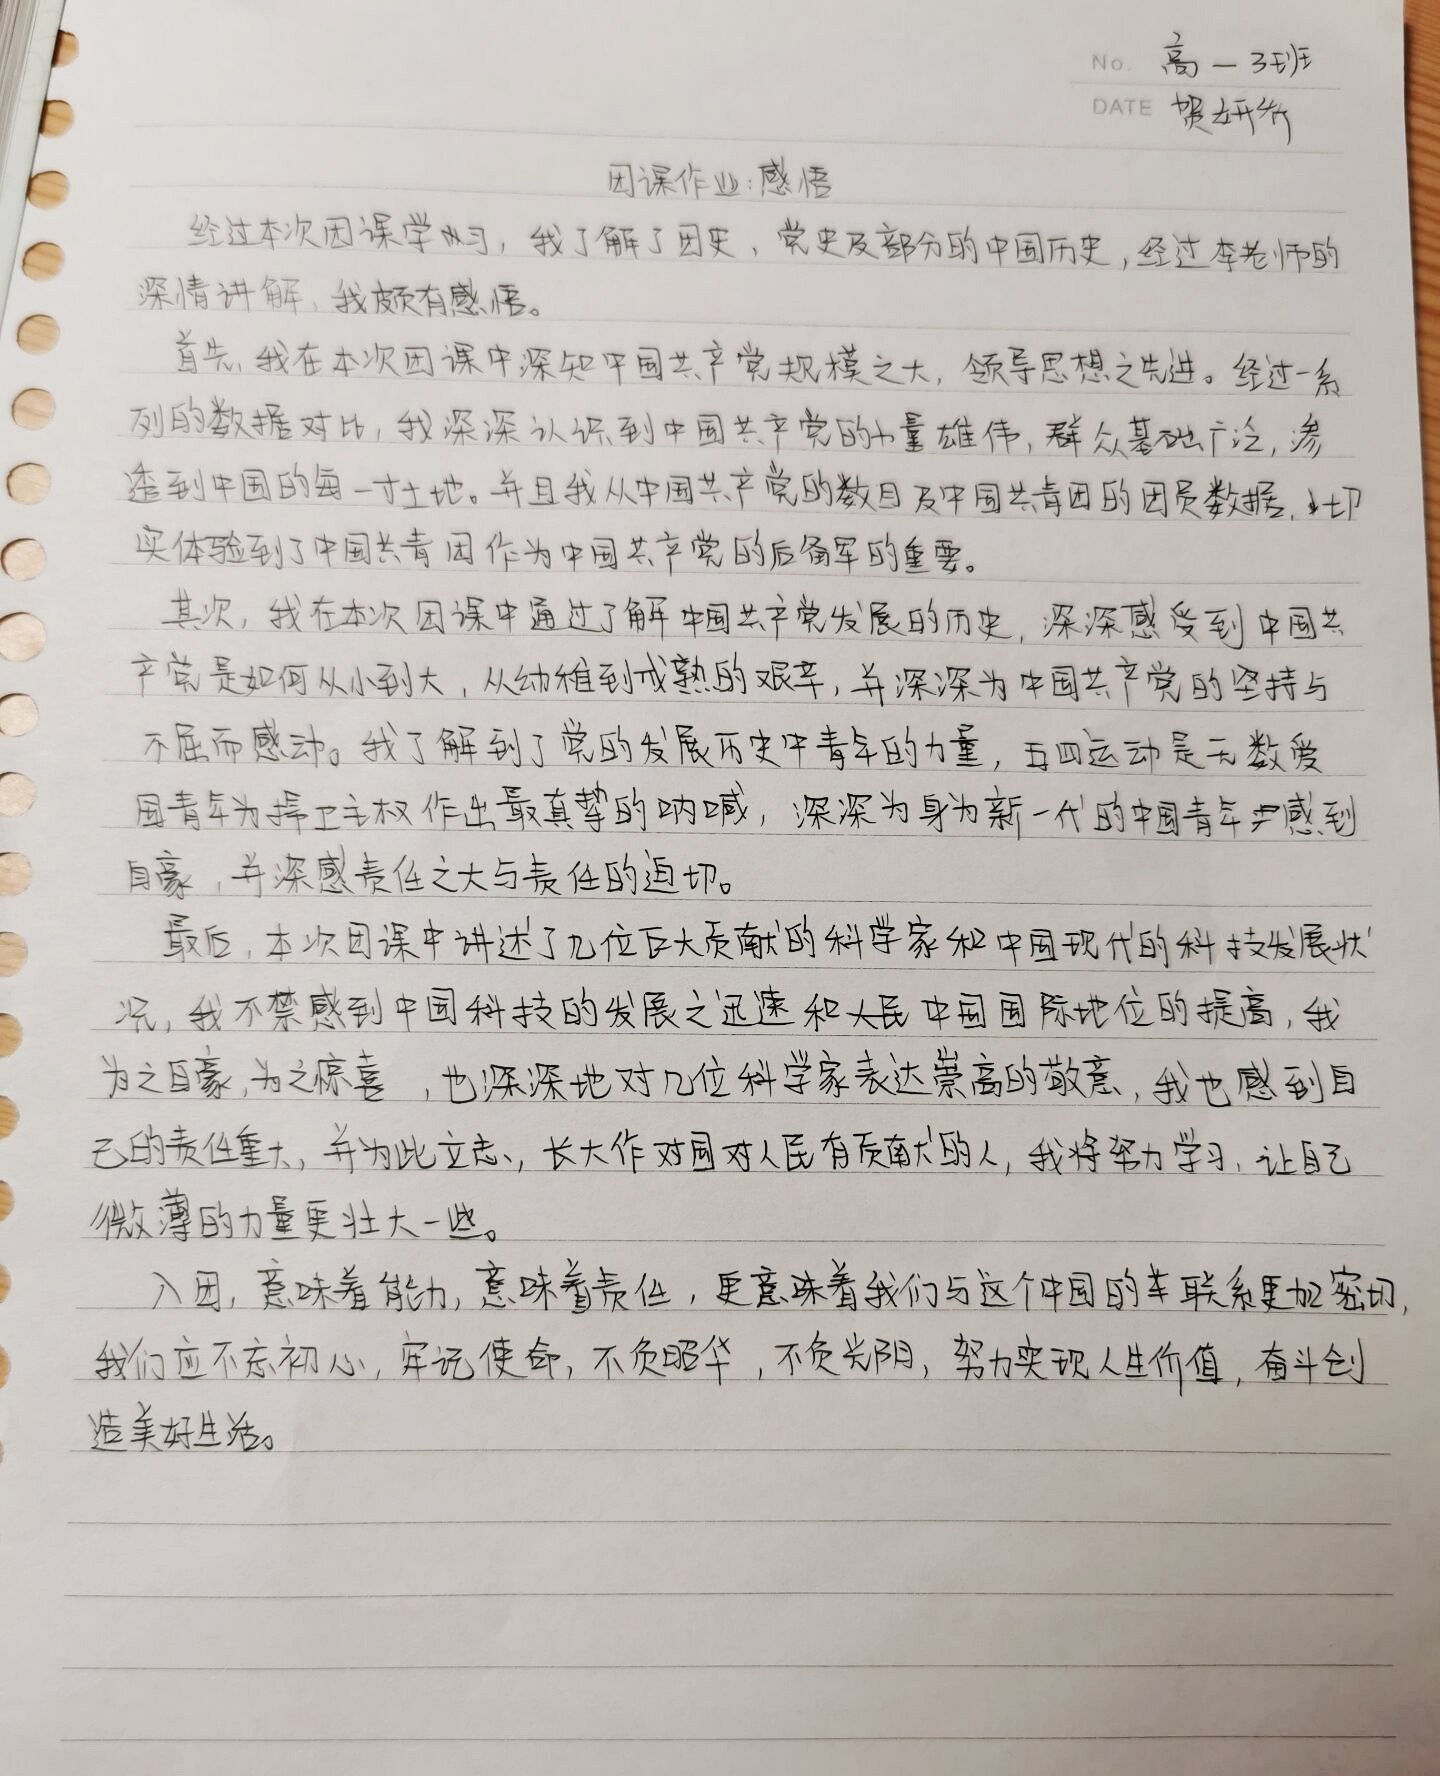 No. 高一3班
DATE 贺妍乔
团课作业:感悟
经过本次团课学习,我了解了团史、党史及部分的中国历史,经过李老师的
深情讲解,我颇有感悟。
首先,我在本次团课中深知中国共产党规模之大,领导思想之先进。经过一系
列的数据对比,我深深认识到中国共产党的力量雄伟,群众基础广泛,渗
透到中国的每一寸土地。并且我从中国共产党的数目及中国共青团的团员数据,切
实体验到了中国共青团作为中国共产党的后备军的重要。
其次,我在本次团课中通过了解中国共产党发展的历史,深深感受到中国共
产党是如何从小到大,从幼稚到成熟的艰辛,并深深为中国共产党的坚持与
不屈而感动。我了解到了党的发展历史中青年的力量,五四运动是无数爱
国青年为捍卫主权作出最真挚的呐喊,深深为身为新一代的中国青年感到
自豪,并深感责任之大与责任的迫切。
最后,本次团课中讲述了几位巨大贡献的科学家和中国现代的科技发展状
况,我不禁感到中国科技的发展之迅速和中国国际地位的提高,我
为之自豪,为之惊喜,也深深地对几位科学家表达崇高的敬意,我也感到自
己的责任重大,并为此立志,长大作对国对人民有贡献的人,我将努力学习,让自己
微薄的力量更壮大一些。
入团,意味着能力,意味着责任,更意味着我们与这个中国的联系更加密切,
我们应不忘初心,牢记使命,不负韶华,不负光阴,努力实现人生价值,奋斗创
造美好生活。